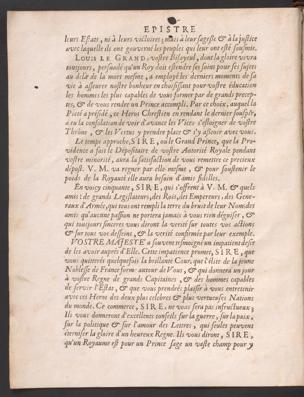 EPISTRE
leurs Estats, ni à leurs victoires; mais à leur sagesse & à la justice
avec laquelle ils ont gouverné les peuples qui leur ont esté soûmis.
LOUIS LE GRAND, vostre Bisayeul, dont la gloire vivra
toûjours, persuadé qu'un Roy doit estendre ses soins pour ses sujets
au delà de la mort mesme, a employé les derniers momens de sa
vie à asseurer nostre bonheur en choisissant pour vostre éducation
les hommes les plus capables de vous former par de grands precep-
tes, & de vous rendre un Prince accompli. Par ce choix, auquel la
Pieté a présidé, ce Heros Chrestien en rendant le dernier soupir,
a eu la consolation de voir d'avance les Vices s'esloigner de vostre
Thrône, & les Vertus y prendre place & s'y asseoir avec vous.
Le temps approche, SIRE, où le Grand Prince, que la Pro-
vidence a fait le Dépositaire de vostre Autorité Royale pendant
vostre minorité, aura la satisfaction de vous remettre ce precieux
dépost. V. M. va regner par elle mesme, & pour soustenir le
poids de la Royauté elle aura besoin d'amis fidelles.
En voicy cinquante, SIRE, qui s'offrent à V. M. & quels
amis! de grands Legislateurs, des Rois, des Empereurs, des Gene-
raux d'Armée, qui tous ont rempli la terre du bruit de leur Nom: des
amis qu'aucune passion ne portera jamais à vous rien déguiser, &
qui toûjours sinceres vous diront la verité sur toutes vos actions
& sur tous vos desseins, & la verité confirmée par leur exemple.
VOSTRE MAJESTÉ a souvent tesmoigné un impatient desir
de les avoir auprés d'Elle. Cette impatience promet, SIRE, que
vous quitterez quelquefois la brillante Cour, que l'élite de la jeune
Noblesse de France forme autour de Vous, & qui donnera un jour
à vostre Regne de grands Capitaines, & des hommes capables
de servir l'Estat, & que vous prendrez plaisir à vous entretenir
avec ces Heros des deux plus celebres & plus vertueuses Nations
du monde. Ce commerce, SIRE, ne vous sera pas infructueux;
Ils vous donneront d'excellents conseils sur la guerre, sur la paix,
sur la politique & sur l'amour des Lettres, qui seules peuvent
éterniser la gloire d'un heureux Regne. Ils vous diront, SIRE,
qu'un Royaume est pour un Prince sage un vaste champ pour y